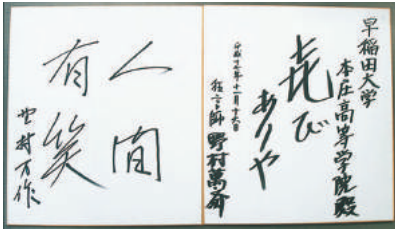 早稲田大学
本庄高等学院殿
㐂び
ありや
平成十七年十一月十六日
狂言師 野村萬斎
人間
有笑
野村万作